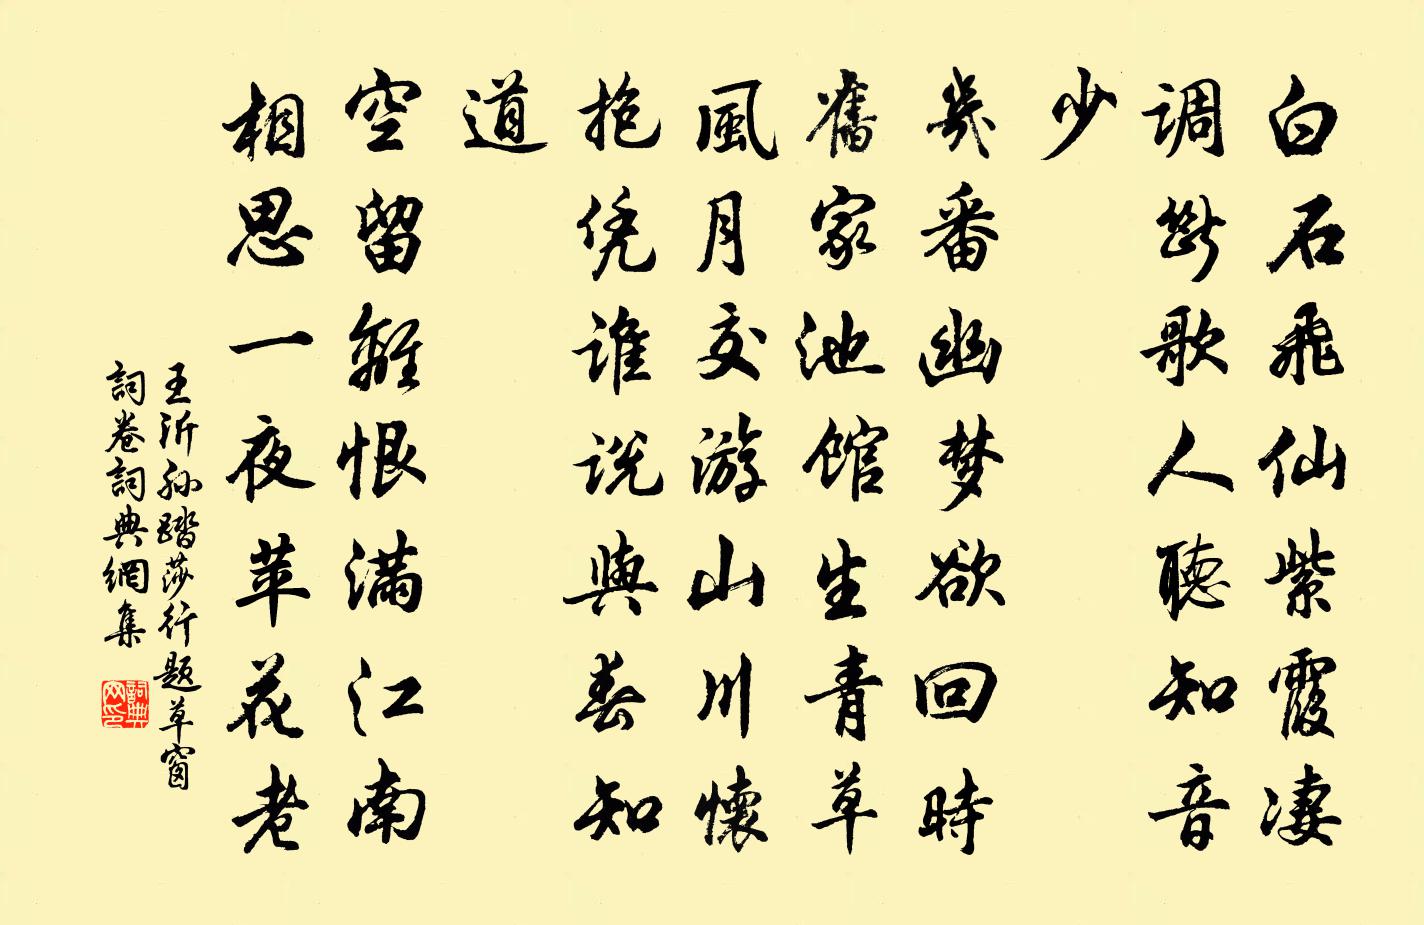 白石飛仙紫霞凄
调斷歌人聽知音
少
幾番幽梦欲回時
舊家池館生青草
風月交游山川懷
抱凭谁说與春知
道
空留離恨满江南
相思一夜苹花老
王沂孙踏莎行题草窗
詞卷詞典網集
詞典
网印